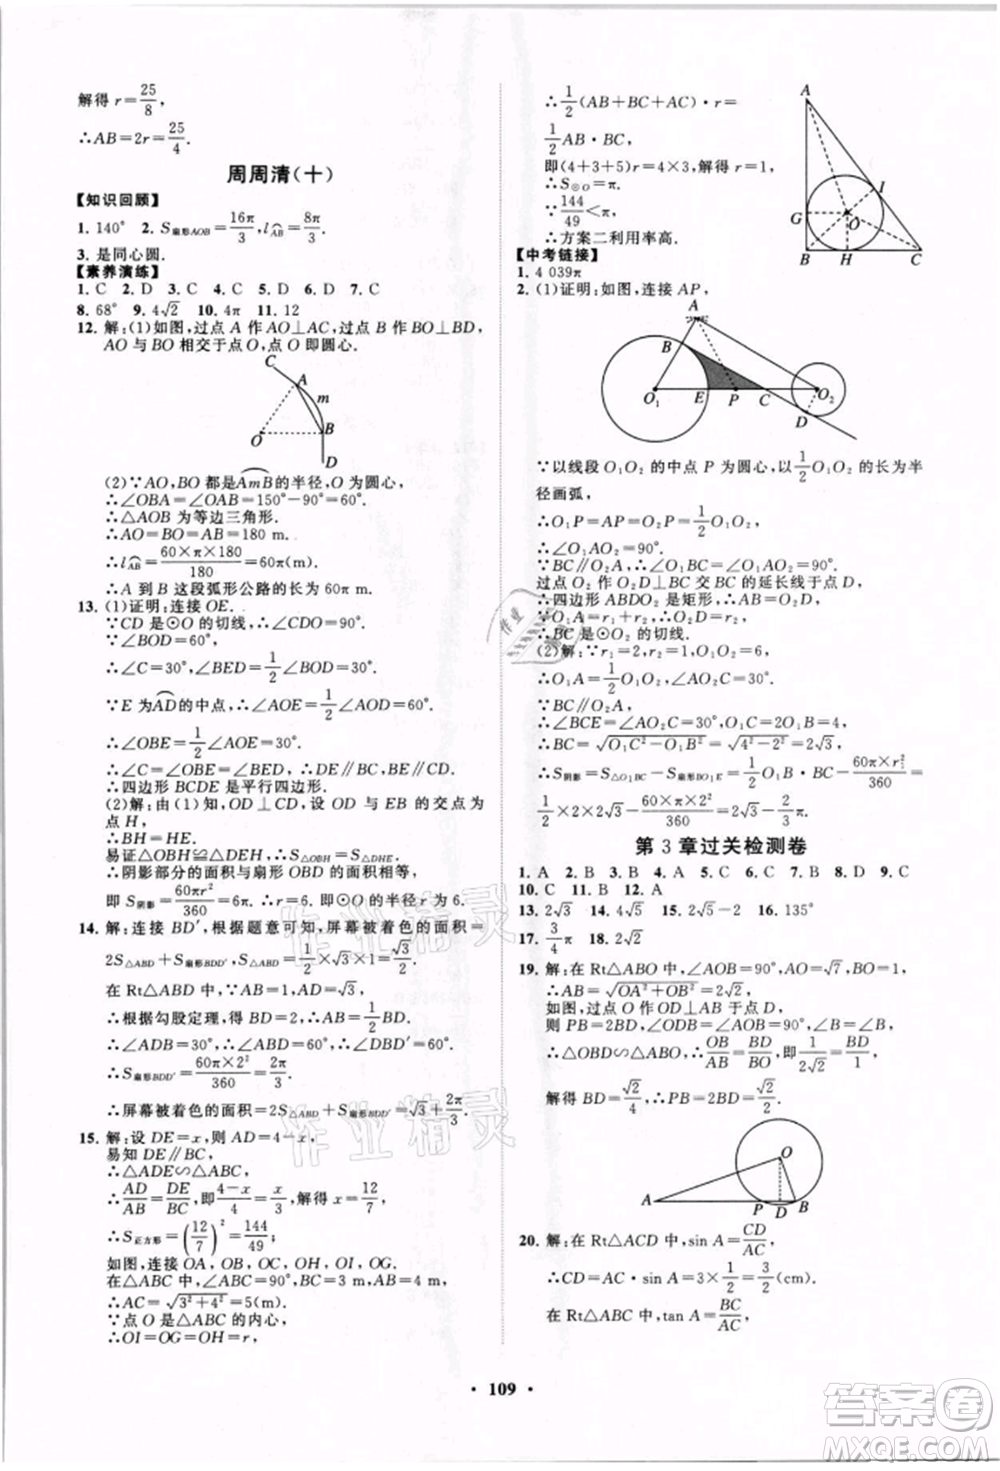 解得 r=25/8,
∴AB=2r=25/4.
周周清(十)
【知识回顾】
1. 140° 2. S扇形AOB=16π/3, l⌒AB=8π/3.
3. 是同心圆.
【素养演练】
1. C 2. D 3. C 4. C 5. D 6. D 7. C
8. 68° 9. 4√2 10. 4π 11. 12
12. 解:(1)如图,过点 A 作 AO⊥AC,过点 B 作 BO⊥BD,
AO 与 BO 相交于点 O,点 O 即圆心.
C A m O B D
(2)∵AO,BO 都是⌒AmB的半径,O 为圆心,
∴∠OBA=∠OAB=150°-90°=60°.
∴△AOB 为等边三角形.
∴AO=BO=AB=180 m.
∴l⌒AB=60×π×180/180=60π(m).
∴A 到 B 这段弧形公路的长为 60π m.
13. (1)证明:连接 OE.
∵CD 是⊙O 的切线,∴∠ODC=90°.
∵∠BOD=60°,
∴∠C=30°,∠BED=1/2∠BOD=30°.
∵E 为⌒AD的中点,∴∠AOE=1/2∠AOD=60°.
∴∠OBE=1/2∠AOE=30°.
∴∠C=∠OBE=∠BED.∴DE∥BC,BE∥CD.
∴四边形 BCDE 是平行四边形.
(2)解:由(1)知,OD⊥CD,设 OD 与 EB 的交点为
点 H,
∴BH=HE.
易证△OBH≌△DEH,∴S△OBH=S△DHE.
∴阴影部分的面积与扇形 OBD 的面积相等.
即 S阴影=60πr²/360=6π.∴r=6.即⊙O 的半径 r 为 6.
14. 解:连接 BD′,根据题意可知,屏幕被着色的面积=
2S△ABD+S扇形BDD′,S△ABD=1/2×√3×1=√3/2.
在 Rt△ABD 中,∵AB=1,AD=√3,
∴根据勾股定理,得 BD=2,∴∠ADB=30°.
∴∠ABD=60°,∴∠DBD′=60°.
∴S扇形BDD′=60π×2²/360=2π/3.
∴屏幕被着色的面积=2S△ABD+S扇形BDD′=√3+2π/3.
15. 解:设 DE=x,则 AD=4-x,
易知 DE∥BC,
∴△ADE∽△ABC,
∴AD/AB=DE/BC,即(4-x)/4=x/3,解得 x=12/7,
∴S正方形=(12/7)²=144/49;
如图,连接 OA,OB,OC,OH,OI,OG,
在△ABC 中,∠ABC=90°,BC=3 m,AB=4 m,
∴AC=√(3²+4²)=5(m).
∵点 O 是△ABC 的内心,
∴OI=OG=OH=r,
∴1/2(AB+BC+AC)·r=
1/2AB·BC,
即(4+3+5)r=4×3,解得 r=1,
∴S⊙O=π.
∵144/49<π,
∴方案二利用率高.
A I G O B H C
【中考链接】
1. 4 039π
2. (1)证明:如图,连接 AP,
A B O₁ E P C O₂ D
∵以线段 O₁O₂ 的中点 P 为圆心,以1/2O₁O₂ 的长为半
径画弧,
∴O₁P=AP=O₂P=1/2O₁O₂,
∴∠O₁AO₂=90°.
∵BC∥AO₂,∴∠O₁BC=∠O₁AO₂=90°.
过点 O₂ 作 O₂D⊥BC 交 BC 的延长线于点 D,
∴四边形 ABDO₂ 是矩形,∴AB=O₂D.
∵O₁A=r₁+r₂,∴O₂D=r₂,
∴BC 是⊙O₂ 的切线.
(2)解:∵r₁=2,r₂=1,O₁O₂=6,
∴O₁A=1/2O₁O₂,∴∠AO₂C=30°.
∵BC∥AO₂,
∴∠BCE=∠AO₂C=30°,∴O₁C=2O₁B=4.
∴BC=√(O₁C²-O₁B²)=√(4²-2²)=2√3,
∴S阴影=S△O₁BC-S扇形BO₁E=1/2O₁B·BC-60π×r₁²/360=
1/2×2×2√3-60×π×2²/360=2√3-2/3π.
第 3 章过关检测卷
1. A 2. B 3. B 4. A 5. C 6. C 7. B 8. D 9. C
10. C 11. B 12. A
13. 2√3 14. 2√5 15. 2√5-2 16. 135°
17. 3/4π 18. 2√2
19. 解:在 Rt△AOB 中,∠AOB=90°,AO=√7,BO=1,
∴AB=√(OA²+OB²)=2√2,
如图,过点 O 作 OD⊥AB 于点 D,
则 PB=2BD,∠ODB=∠AOB=90°,∠B=∠B,
∴△OBD∽△ABO,∴OB/AB=BD/BO,即1/(2√2)=BD/1,
解得 BD=√2/4,∴PB=2BD=√2/2.
O A P D B
20. 解:在 Rt△ACD 中,sin A=CD/AC,
∴CD=AC·sin A=3×1/2=3/2(cm).
在 Rt△ABC 中,tan A=BC/AC,
· 109 ·
作业精灵
作业精灵
作业
答案圈
MXQE.COM